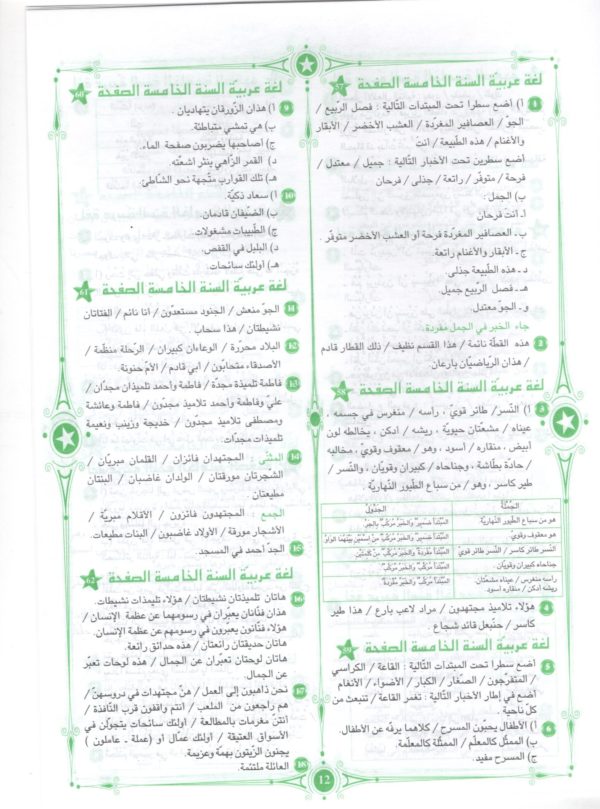 لغة عربيّة السنة الخامسة الصفحة 57
1 أ) أضع سطرا تحت المبتدآت التّالية : فصل الرّبيع /
الجوّ / العصافير المغرّدة / العشب الأخضر / الأبقار
والأغنام / هذه الطّبيعة / أنت
أضع سطرين تحت الأخبار التّالية : جميل / معتدل /
فرحة / متوفّر / راتعة / جذلى / فرحان
ب) الجمل :
أ ـ أنت فرحان
ب ـ العصافير المغرّدة فرحة أو العشب الأخضر متوفّر .
ج ـ الأبقار والأغنام راتعة .
د ـ هذه الطّبيعة جذلى .
هـ ـ فصل الرّبيع جميل .
و ـ الجوّ معتدل .
جاء الخبر في الجمل مفردة.
2 هذه القطّة نائمة / هذا القسم نظيف / ذلك القطار قادم
/ هذان الرّياضيّان بارعان .
لغة عربيّة السنة الخامسة الصفحة 58
3 أ) النّسر / طائر قويّ ، رأسه / منغرس في جسمه ،
عيناه / مشعّتان حيويّة ، ريشه / أدكن ، يخالطه لون
أبيض ، منقاره / أسود ، وهو / معقوف وقويّ ، مخالبه
/ حادّة بطّاشة ، وجناحاه / كبيران وقويّان ، والنّسر /
طير كاسر ، وهو / من سباع الطّيور النّهاريّة .
الجُمْلَةُ الجَدْوَلُ
هو من سباع الطّيور النّهاريّة المُبْتَدَأُ ضَمِيرٌ والخَبَرُ مُرَكَّبٌ بالجَرِّ
هو معقوف وقويّ . المُبْتَدَأُ ضَمِيرٌ والخَبَرُ مُرَكَّبٌ مِنْ اسْمَيْنِ بَيْنَهُمَا الوَاوُ
النّسر طائر كاسر / النّسر طائر قويّ المُبْتَدَأُ مُفْرَدَةٌ والخَبَرُ مُرَكَّبٌ مِنْ كَلِمَتَيْنِ
جناحاه كبيران وقويّان . المُبْتَدَأُ مُرَكَّبٌ والخَبَرُ مُرَكَّبٌ
رأسه منغرس / عيناه مشعّتان المُبْتَدَأُ مُرَكَّبٌ والخَبَرُ مُفْرَدَةٌ
ريشه أدكن / منقاره أسود.
4 هؤلاء تلاميذ مجتهدون / مراد لاعب بارع / هذا طير
كاسر / حنّبعل قائد شجاع
لغة عربيّة السنة الخامسة الصفحة 59
5 أضع سطرا تحت المبتدآت التّالية : القاعة / الكراسي
/ المتفرّجون / الصّغار / الكبار / الأضواء / الأنغام
أضع في إطار الأخبار التّالية : تغمر القاعة / تنبعث من
كلّ ناحية .
6 أ) الأطفال يحبّون المسرح / كلاهما يرفّه عن الأطفال.
ب) الممثّل كالمعلّم / الممثّلة كالمعلّمة.
ج) المسرح مفيد.
لغة عربيّة السنة الخامسة الصفحة 60
9 أ) هذان الزّورقان يتهاديان .
ب) هي تمشي متباطئة.
ج) أصاحبها يضربون صفحة الماء.
د) القمر الزّاهي ينثر أشعّته.
هـ) تلك القوارب متّجهة نحو الشّاطئ.
10 أ) سعاد ذكيّة.
ب) الضّيفان قادمان.
ج) الطّبيبات مشغولات.
د) البلبل في القفص.
هـ) أولئك سائحات.
لغة عربيّة السنة الخامسة الصفحة 61
11 الجوّ منعش / الجنود مستعدّون / أنا نائم / الفتاتان
نشيطتان / هذا سحاب .
12 البلاد محررة / الوعاءان كبيران / الرّحلة منظّمة /
الأصدقاء متحابّون / أبي قادم / الأمّ حنونة.
13 فاطمة تلميذة مجدّة / فاطمة وأحمد تلميذان مجدّان /
عليّ وفاطمة وأحمد تلاميذ مجدّون / فاطمة وعائشة
ومصطفى تلاميذ مجدّون / خديجة وزينب ونعيمة
تلميذات مجدّات
14 المثنّى : المجتهدان فائزان / القلمان مبريّان /
الشّجرتان مورقتان / الولدان غاضبان / البنتان
مطيعتان
الجمع : المجتهدون فائزون / الأقلام مبريّة /
الأشجار مورقة / الأولاد غاضبون / البنات مطيعات.
15 الجدّ أحمد في المسجد
لغة عربيّة السنة الخامسة الصفحة 62
16 هاتان تلميذتان نشيطتان / هؤلاء تلميذات نشيطات.
هذان فنّانان يعبّران في رسومهما عن عظمة الإنسان /
هؤلاء فنّانون يعبرون في رسومهم عن عظمة الإنسان.
هاتان حديقتان رائعتان / هذه حدائق رائعة.
هاتان لوحتان تعبّران عن الجمال / هذه لوحات تعبّر
عن الجمال.
17 نحن ذاهبون إلى العمل / هنّ مجتهدات في دروسهنّ /
هم راجعون من الملعب / أنتم واقفون قرب النّافذة /
أنتنّ مغرمات بالمطالعة / أولئك سائحات يتجوّلن في
الأسواق العتيقة / أولئك عمّال أو (عملة ـ عاملون )
يجنون الزّيتون بهمّة وعزيمة.
18 العائلة ملتئمة.
12